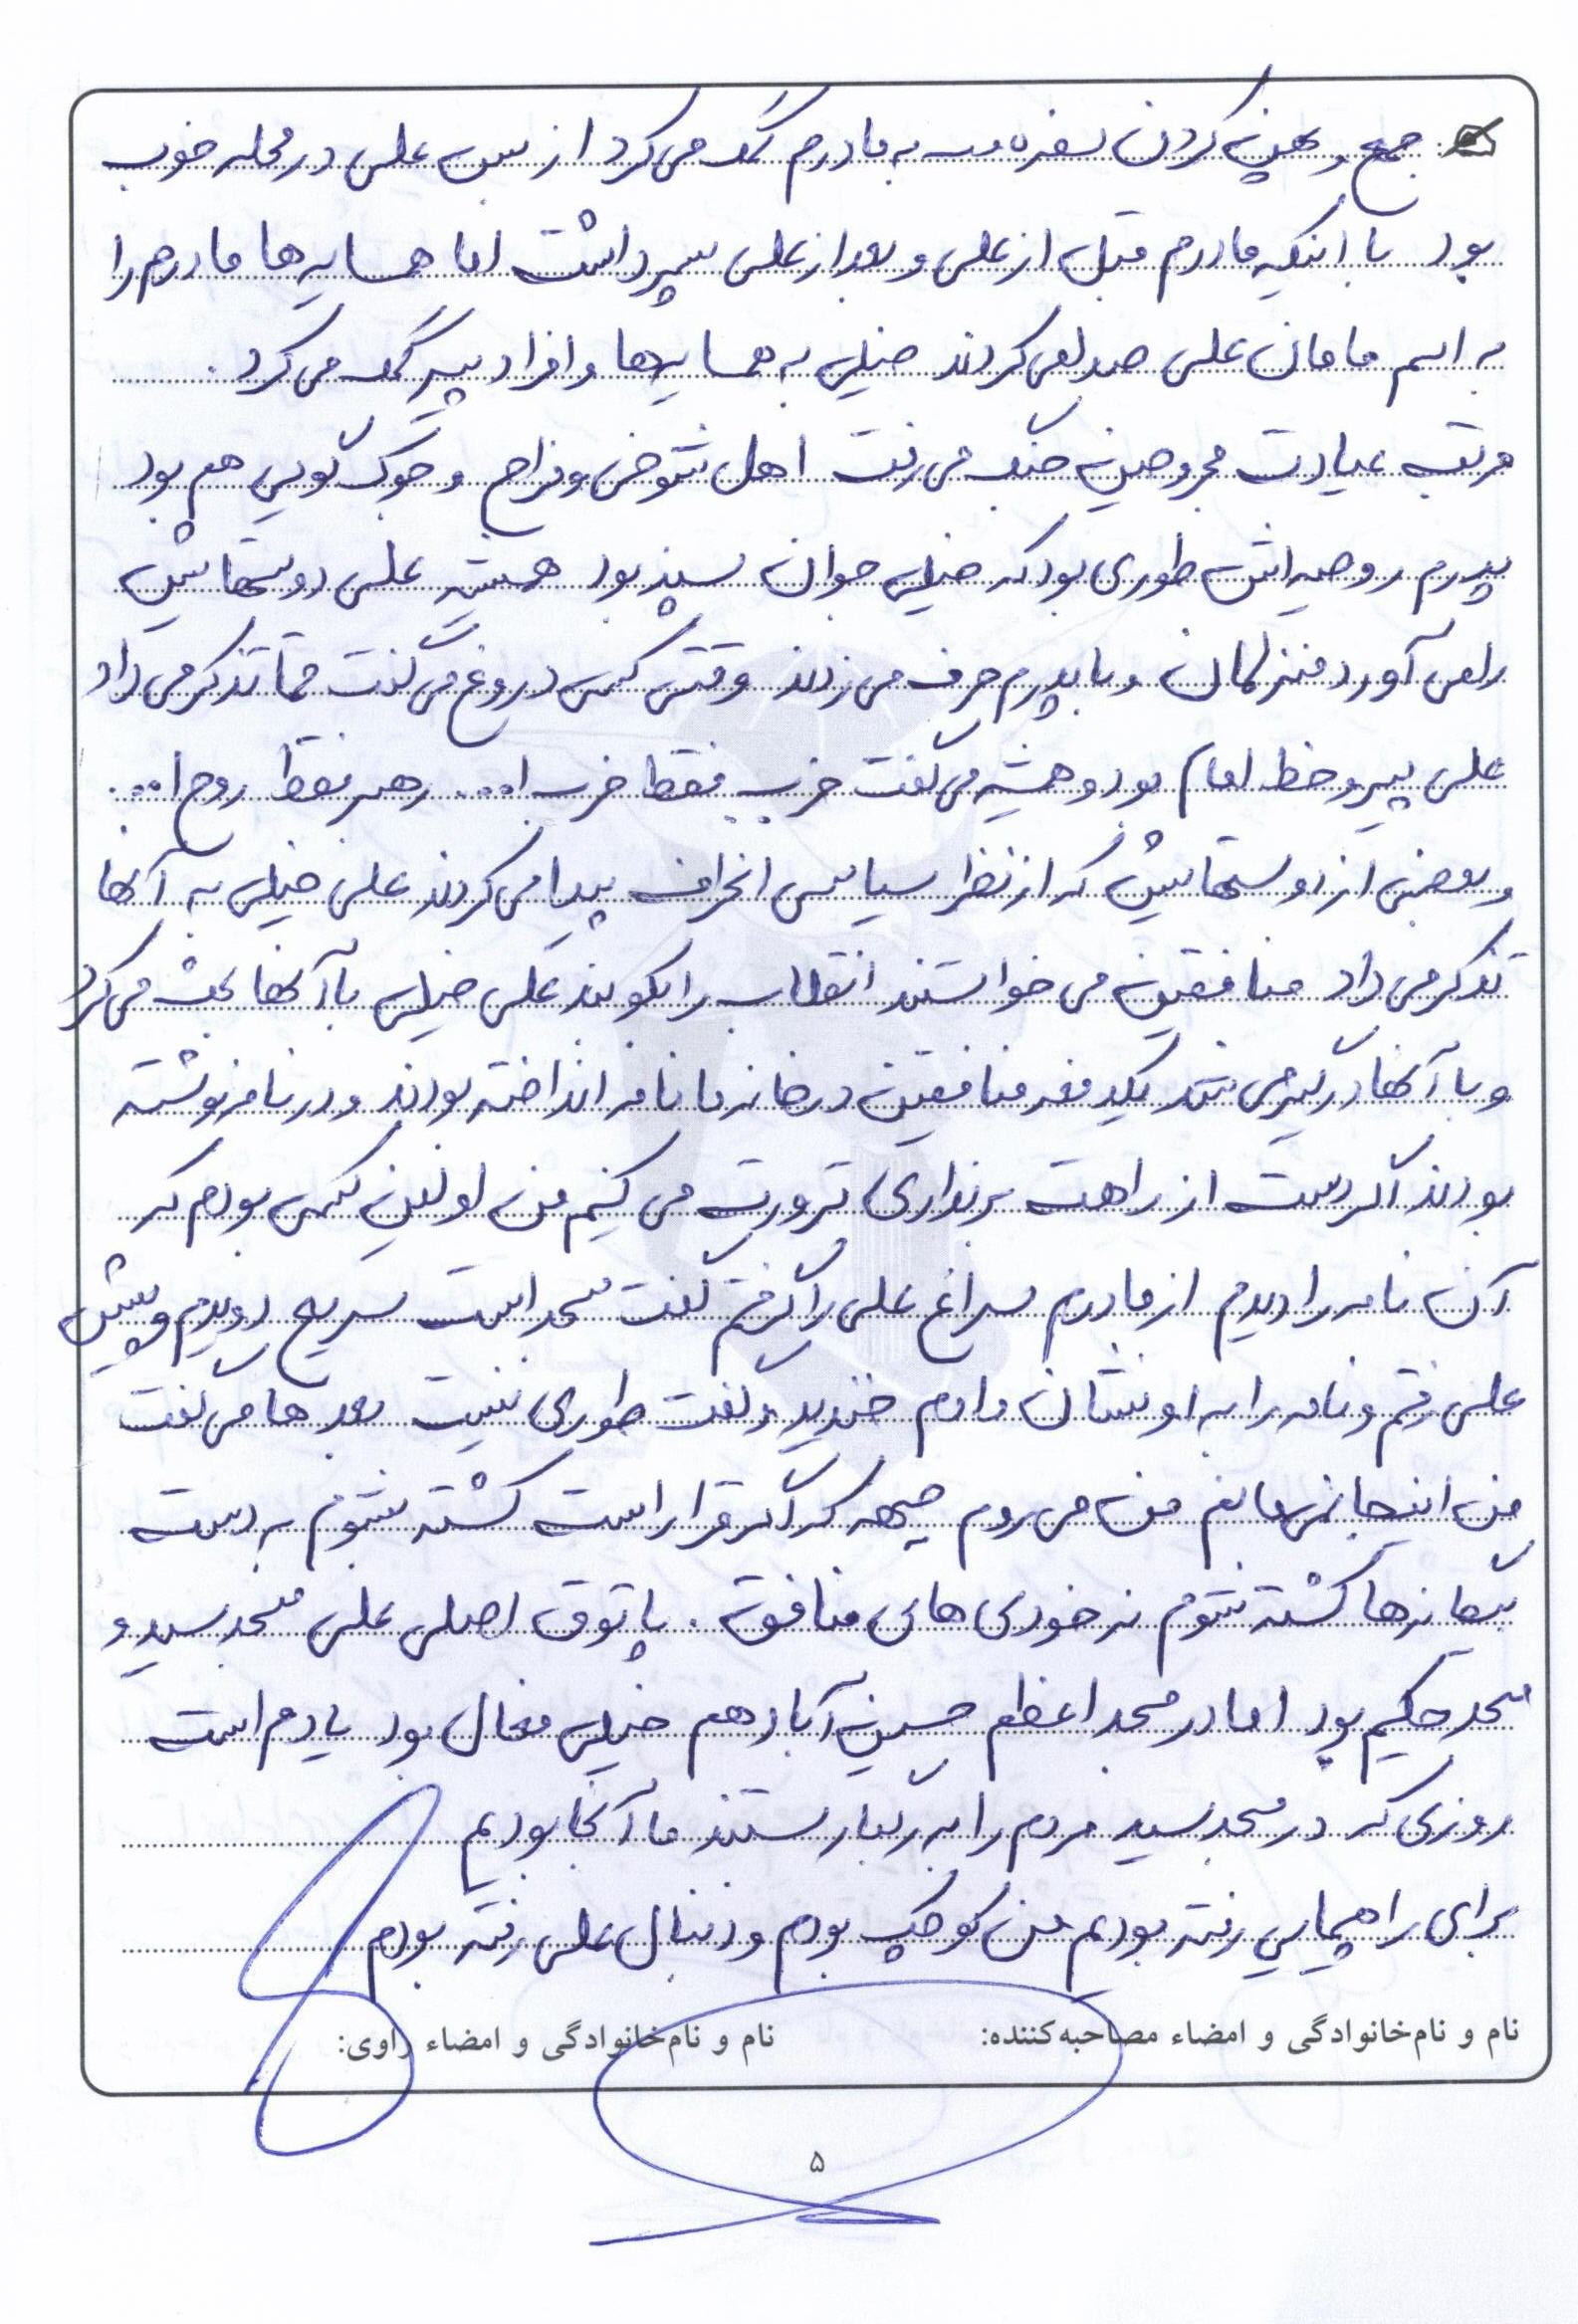 جمع و پهن کردن سفره و... به مادرم کمک می‌کرد از بس علی در محله خوب
بود با اینکه مادرم قبل از علی و بعد از علی پسر داشت اما همسایه‌ها مادرم را
به اسم مامان علی صدا می‌کردند خیلی به همسایه‌ها و افراد پیر کمک می‌کرد.
مرتب عیادت مجروحین جنگ می‌رفت اهل شوخی و مزاح و جوک گویی هم بود
پدرم روحیه‌اش طوری بود که خیلی جوان پسند بود همیشه علی دوستهایش
را می‌آورد منزلمان و با پدرم حرف می‌زدند وقتی کسی دروغ می‌گفت حتما تذکر می‌داد
علی پیرو خط امام بود و همیشه می‌گفت حزب فقط حزب ا... رهبر فقط روح ا...
و بعضی از دوستهایش که از نظر سیاسی انحراف پیدا می‌کردند علی خیلی به آنها
تذکر می‌داد منافقین می‌خواستند انقلاب را بکوبند علی خیلی با آنها بحث می‌کرد
و با آنها درگیر می‌شد یکدفعه منافقین در خانه ما نامه انداخته بودند و در نامه نوشته
بودند اگر دست از راهت برنداری ترورت می‌کنیم من اولین کسی بودم که
آن نامه را دیدم از مادرم سراغ علی را گرفتم گفت مسجد است سریع دویدم و پیش
علی رفتم و نامه را به او نشان دادم خندید و گفت طوری نیست بعدها می‌گفت
من اینجا نمی‌مانم من می‌روم جبهه که اگر قرار است کشته شوم به دست
بیگانه‌ها کشته شوم نه خودی‌های منافق. پاتوق اصلی علی مسجد سید و
مسجد حکیم بود اما در مسجد اعظم حسین آباد هم خیلی فعال بود یادم است
روزی که در مسجد سید مردم را به رگبار بستند ما آنجا بودیم
برای راهپیمایی رفته بودیم من کوچک بودم و دنبال علی رفته بودم
نام و نام‌خانوادگی و امضاء مصاحبه‌کننده: نام و نام‌خانوادگی و امضاء راوی:
۵